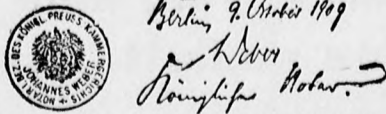 NOTAR I. BEZ. DES KÖNIGL. PREUSS. KAMMERGERICHTS
JOHANNES WEBER
Berlin, 9. October 1909
Weber
Königlicher Notar.